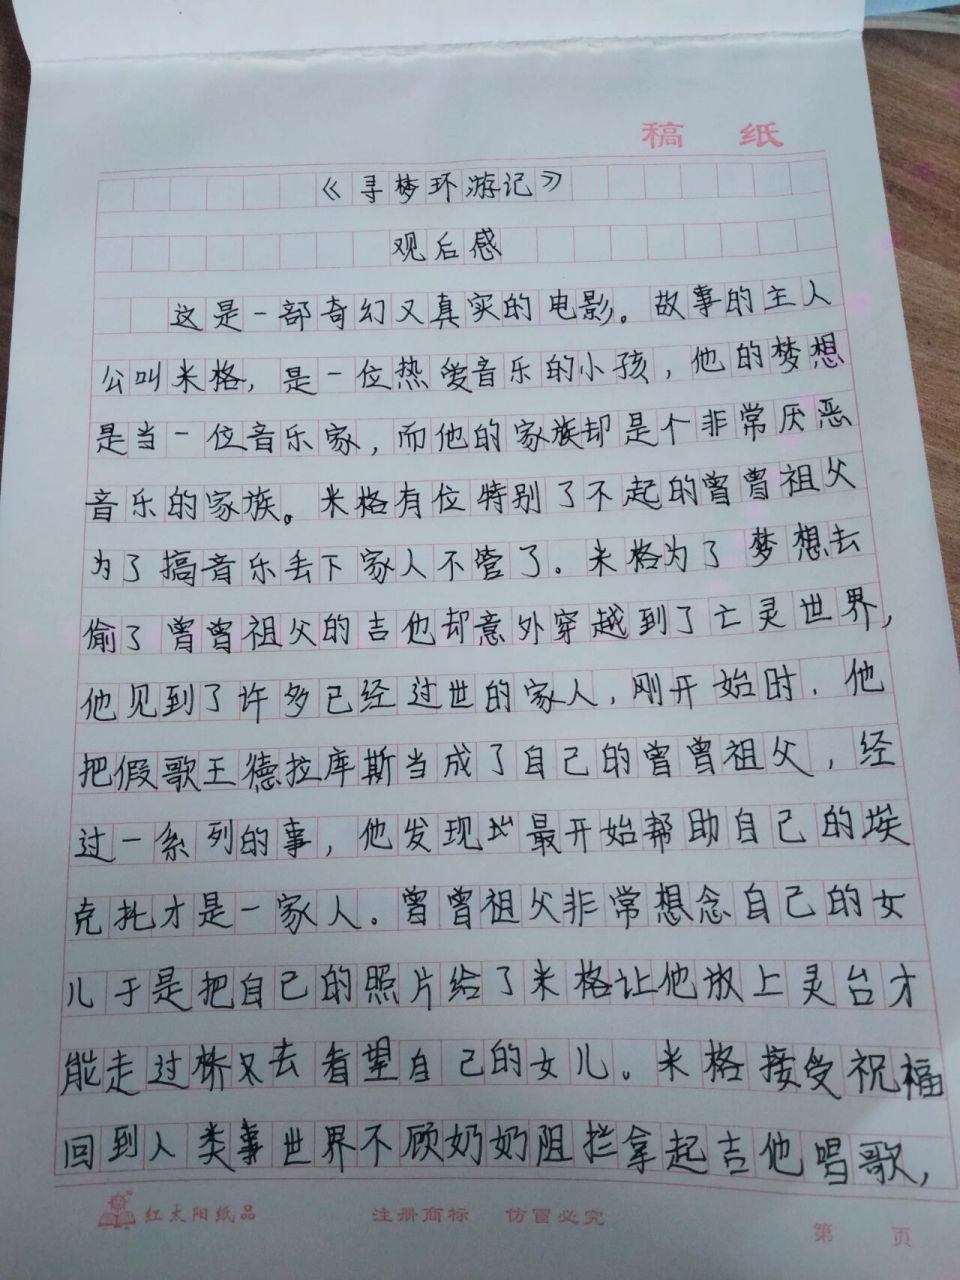 稿 纸
《寻梦环游记》
观后感
这是一部奇幻又真实的电影。故事的主人
公叫米格，是一位热爱音乐的小孩，他的梦想
是当一位音乐家，而他的家族却是个非常厌恶
音乐的家族。米格有位特别了不起的曾曾祖父
为了搞音乐丢下家人不管了。米格为了梦想去
偷了曾曾祖父的吉他却意外穿越到了亡灵世界，
他见到了许多已经过世的家人，刚开始时，他
把假歌王德拉库斯当成了自己的曾曾祖父，经
过一系列的事，他发现最开始帮助自己的埃
克托才是一家人。曾曾祖父非常想念自己的女
儿于是把自己的照片给了米格让他放上灵台才
能走过桥又去看望自己的女儿。米格接受祝福
回到人类世界不顾奶奶阻拦拿起吉他唱歌，
红太阳纸品 注册商标 仿冒必究 第 页